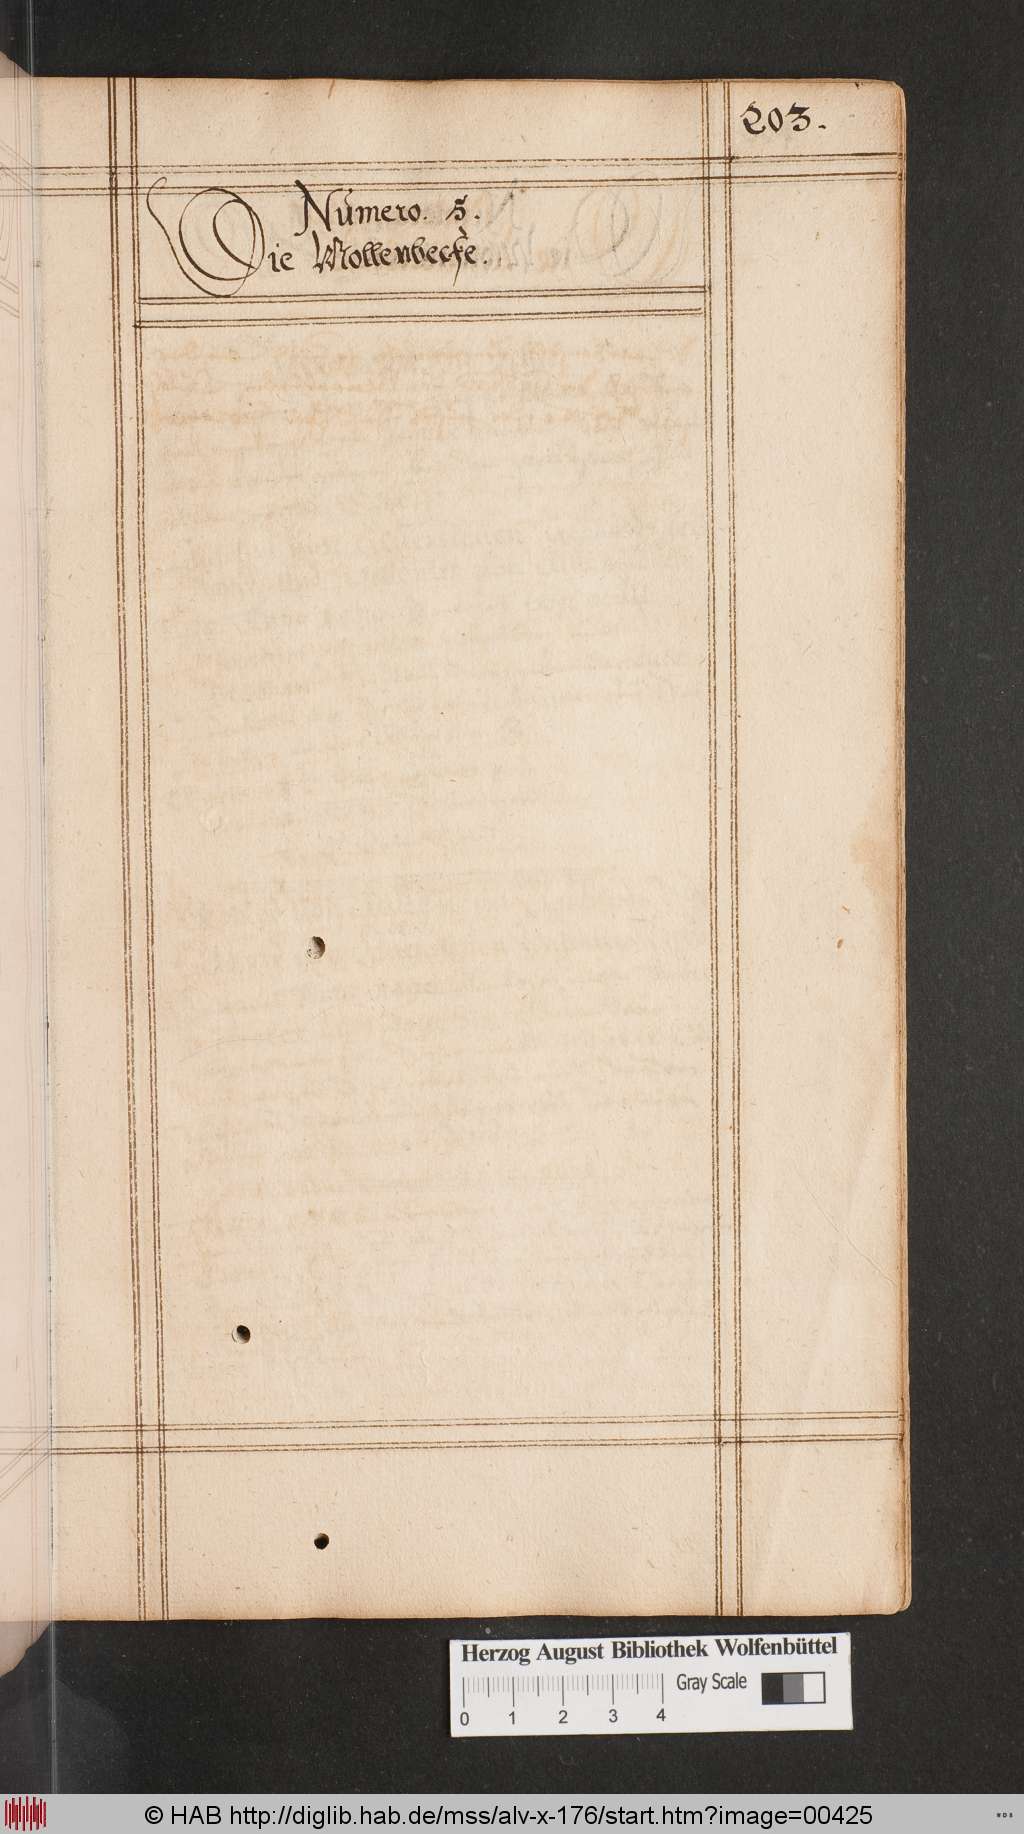 203.
Número. 5.
Die Mollenbecke.
Herzog August Bibliothek Wolfenbüttel
Gray Scale
0 1 2 3 4
© HAB http://diglib.hab.de/mss/alv-x-176/start.htm?image=00425